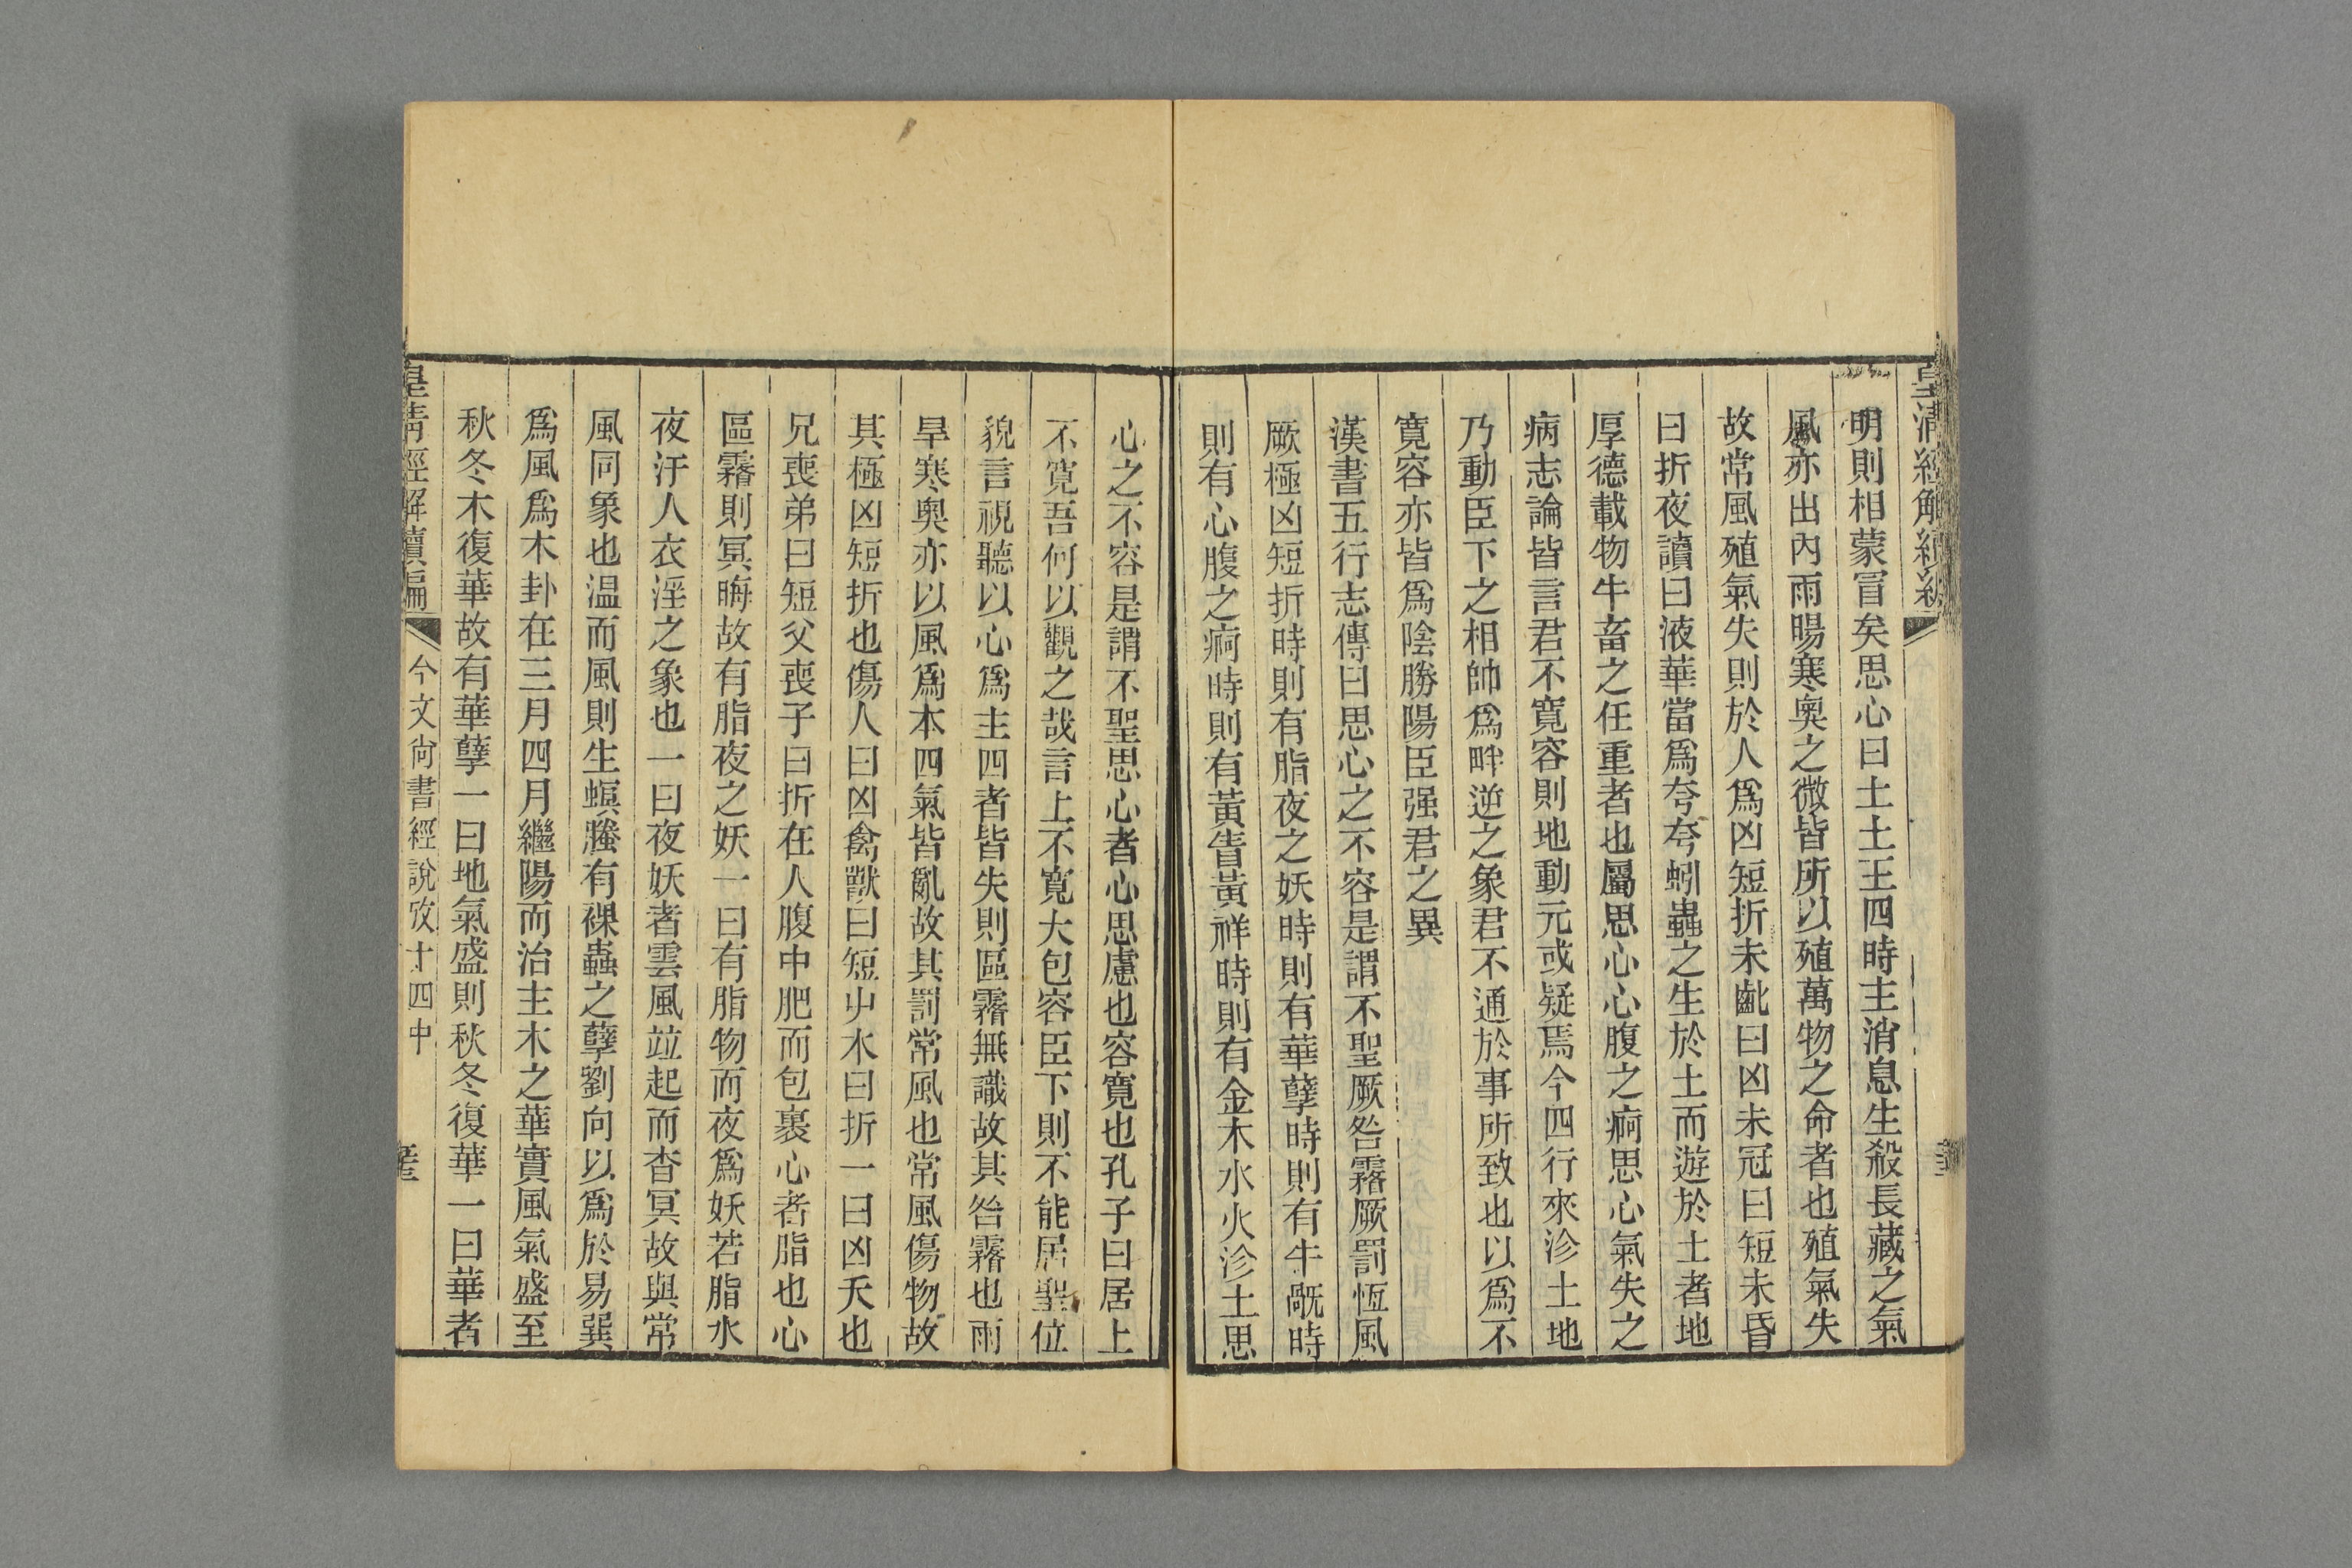 明則相蒙冒矣思心曰土土王四時主消息生殺長藏之氣
風亦出內雨暘寒奧之微皆所以殖萬物之命者也殖氣失
故常風殖氣失則於人爲凶短折未齔曰凶未冠曰短未昏
曰折夜讀曰液華當爲夸夸蚓蟲之生於土而遊於土者地
厚德載物牛畜之任重者也屬思心心腹之痾思心氣失之
病志論皆言君不寬容則地動元或疑焉今四行來沴土地
乃動臣下之相帥爲畔逆之象君不通於事所致也以爲不
寬容亦皆爲陰勝陽臣强君之異
漢書五行志傳曰思心之不容是謂不聖厥咎霿厥罰恆風
厥極凶短折時則有脂夜之妖時則有華孽時則有牛旤時
則有心腹之痾時則有黃眚黃祥時則有金木水火沴土思
心之不容是謂不聖思心者心思慮也容寬也孔子曰居上
不寬吾何以觀之哉言上不寬大包容臣下則不能居聖位
貌言視聽以心爲主四者皆失則區霿無識故其咎霿也雨
旱寒奧亦以風爲本四氣皆亂故其罰常風也常風傷物故
其極凶短折也傷人曰凶禽獸曰短屮木曰折一曰凶夭也
兄喪弟曰短父喪子曰折在人腹中肥而包裹心者脂也心
區霿則冥晦故有脂夜之妖一曰有脂物而夜爲妖若脂水
夜汙人衣淫之象也一曰夜妖者雲風竝起而杳冥故與常
風同象也温而風則生螟螣有裸蟲之孽劉向以爲於易巽
爲風爲木卦在三月四月繼陽而治主木之華實風氣盛至
秋冬木復華故有華孽一曰地氣盛則秋冬復華一曰華者
皇清經解續編
今文尚書經說攷十四中